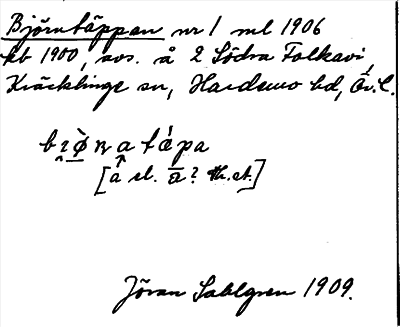 Björntäppan nr 1 ml 1906
kb 1900, avs. å 2 Södra Folkavi,
Kräcklinge sn, Hardemo hd, Ör. l.
bi̯ø̀ɳa tǽpa
[a el. a? Jöran Sahlgren 1909.